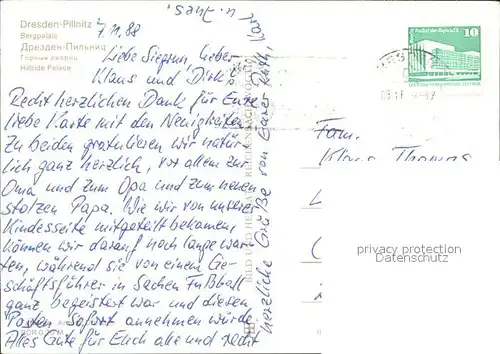 Dresden-Pillnitz
Bergpalais
Дрезден-Пильниц
Горный дворец
Hillside Palace
7.11.88
Liebe Siegrun, lieber
Klaus und Dirk!
Recht herzlichen Dank für Eure
liebe Karte mit den Neuigkeiten
Zu beiden gratulieren wir natür-
lich ganz herzlich, vor allem zur
Oma und zum Opa und zum neuen
stolzen Papa. Wie wir von unserer
Kindesseite mitgeteilt bekamen,
können wir darauf noch lange war-
ten, während sie von einem Ge-
schäftsführer in Sachen Fußball
ganz begeistert war und diesen
Posten sofort annehmen würde.
Alles Gute für Euch alle und recht
herzliche Grüße von Eurer Ruth, Karl
u. Ines.
BILD UND HEIMAT REICHENBACH
10
Fam.
Klaus Thomas
privacy protection
Datenschutz